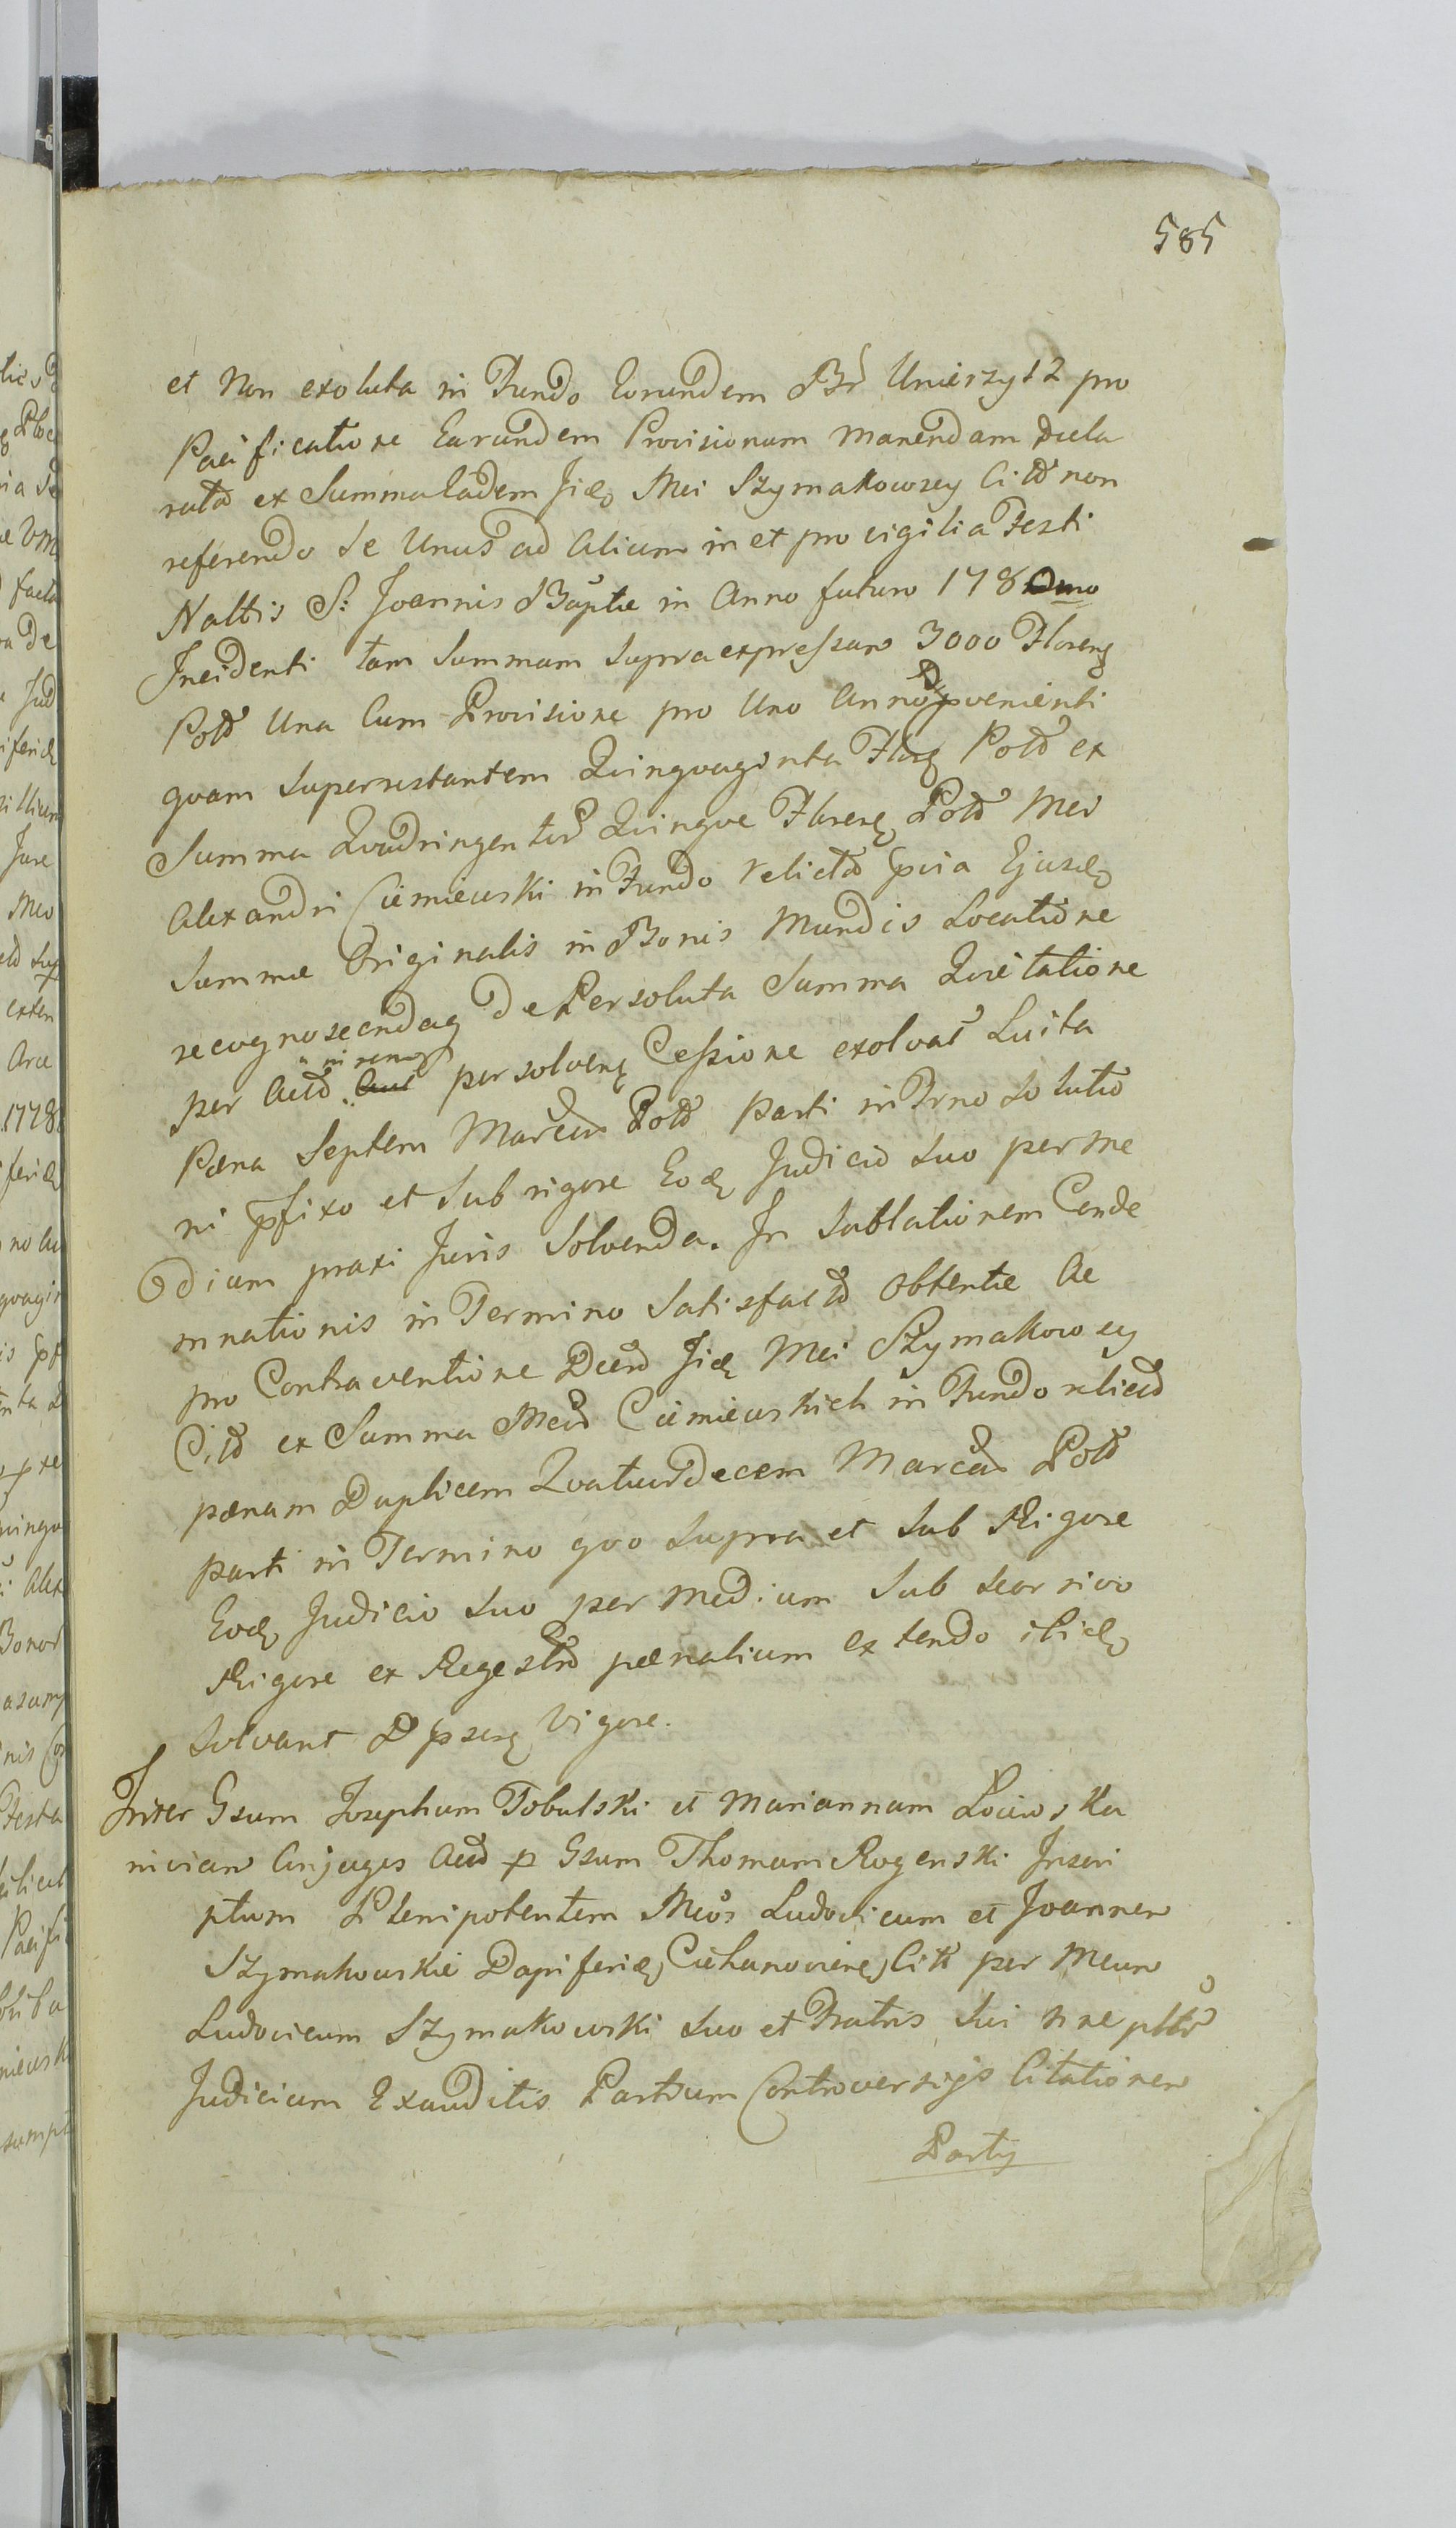 585
et Non exoluta in Fundo Eorundem Br Unierzysz pro
Pacificatione Earundem Provisionum manendam decla
ratd ex Summa Eadem Jidz Mei Szymakowscy Citd non
referendo se Unus ad Alium in et pro vigilia Festi
Naltis S: Joannis Baptae in Anno futuro 1780mo
Incidenti tam Summam Supraexpressam 3000 Floreng
Pold Una Cum Provisione pro Uno Anno pvenienti
quam Superrestantem Quinquaginta Flng Pold ex
Summa Quadringentor Quinque Floreng Pold Mei
Alexandri Ciemiewski in Fundo relictd pvia Ejusdz
Summae Originalis in Bonis Mundis Locatione
recognoscendag De Persoluta Summa Quietatione
per Actd in remog persolveng Cessione exolvat Luita
Paena Septem Marcar Pold Parti in Trno Solutio
ni pfixo et Sub rigore Eodz Judicio Suo per me
dium praxi Juris Solvenda. In Sublationem Conde
mnationis in Termino Satisfactd obtentae Ac
pro Contraventione Decrd Jidz Mei Szymakowscy
Citd ex Summa Meid Ciemiewskich in Fundo relictd
paenam Duplicem Quatuordecem Marcar Pold
parti in Termino quo Supra et Sub Rigore
Eodz Judicio Suo per medium Sub Seorsivo
Rigore ex Regestrd paenalium extendo ibidz
Solvant D pseng Vigore.
Inter Gsum Josephum Tobulski et Mariannam Lociwska
niciam Conjuges Actd p Gsum Thomam Rogenski Inscri
ptum Plenipotentem Meos Ludovicum et Joannem
Szymakowskie Dapiferidz Ciehanovieng Citt per Meum
Ludovicum Szymakowski Suo et Fratris Sui nne pltr
Judicium Exauditis Partium Controversijs Citationem
Party